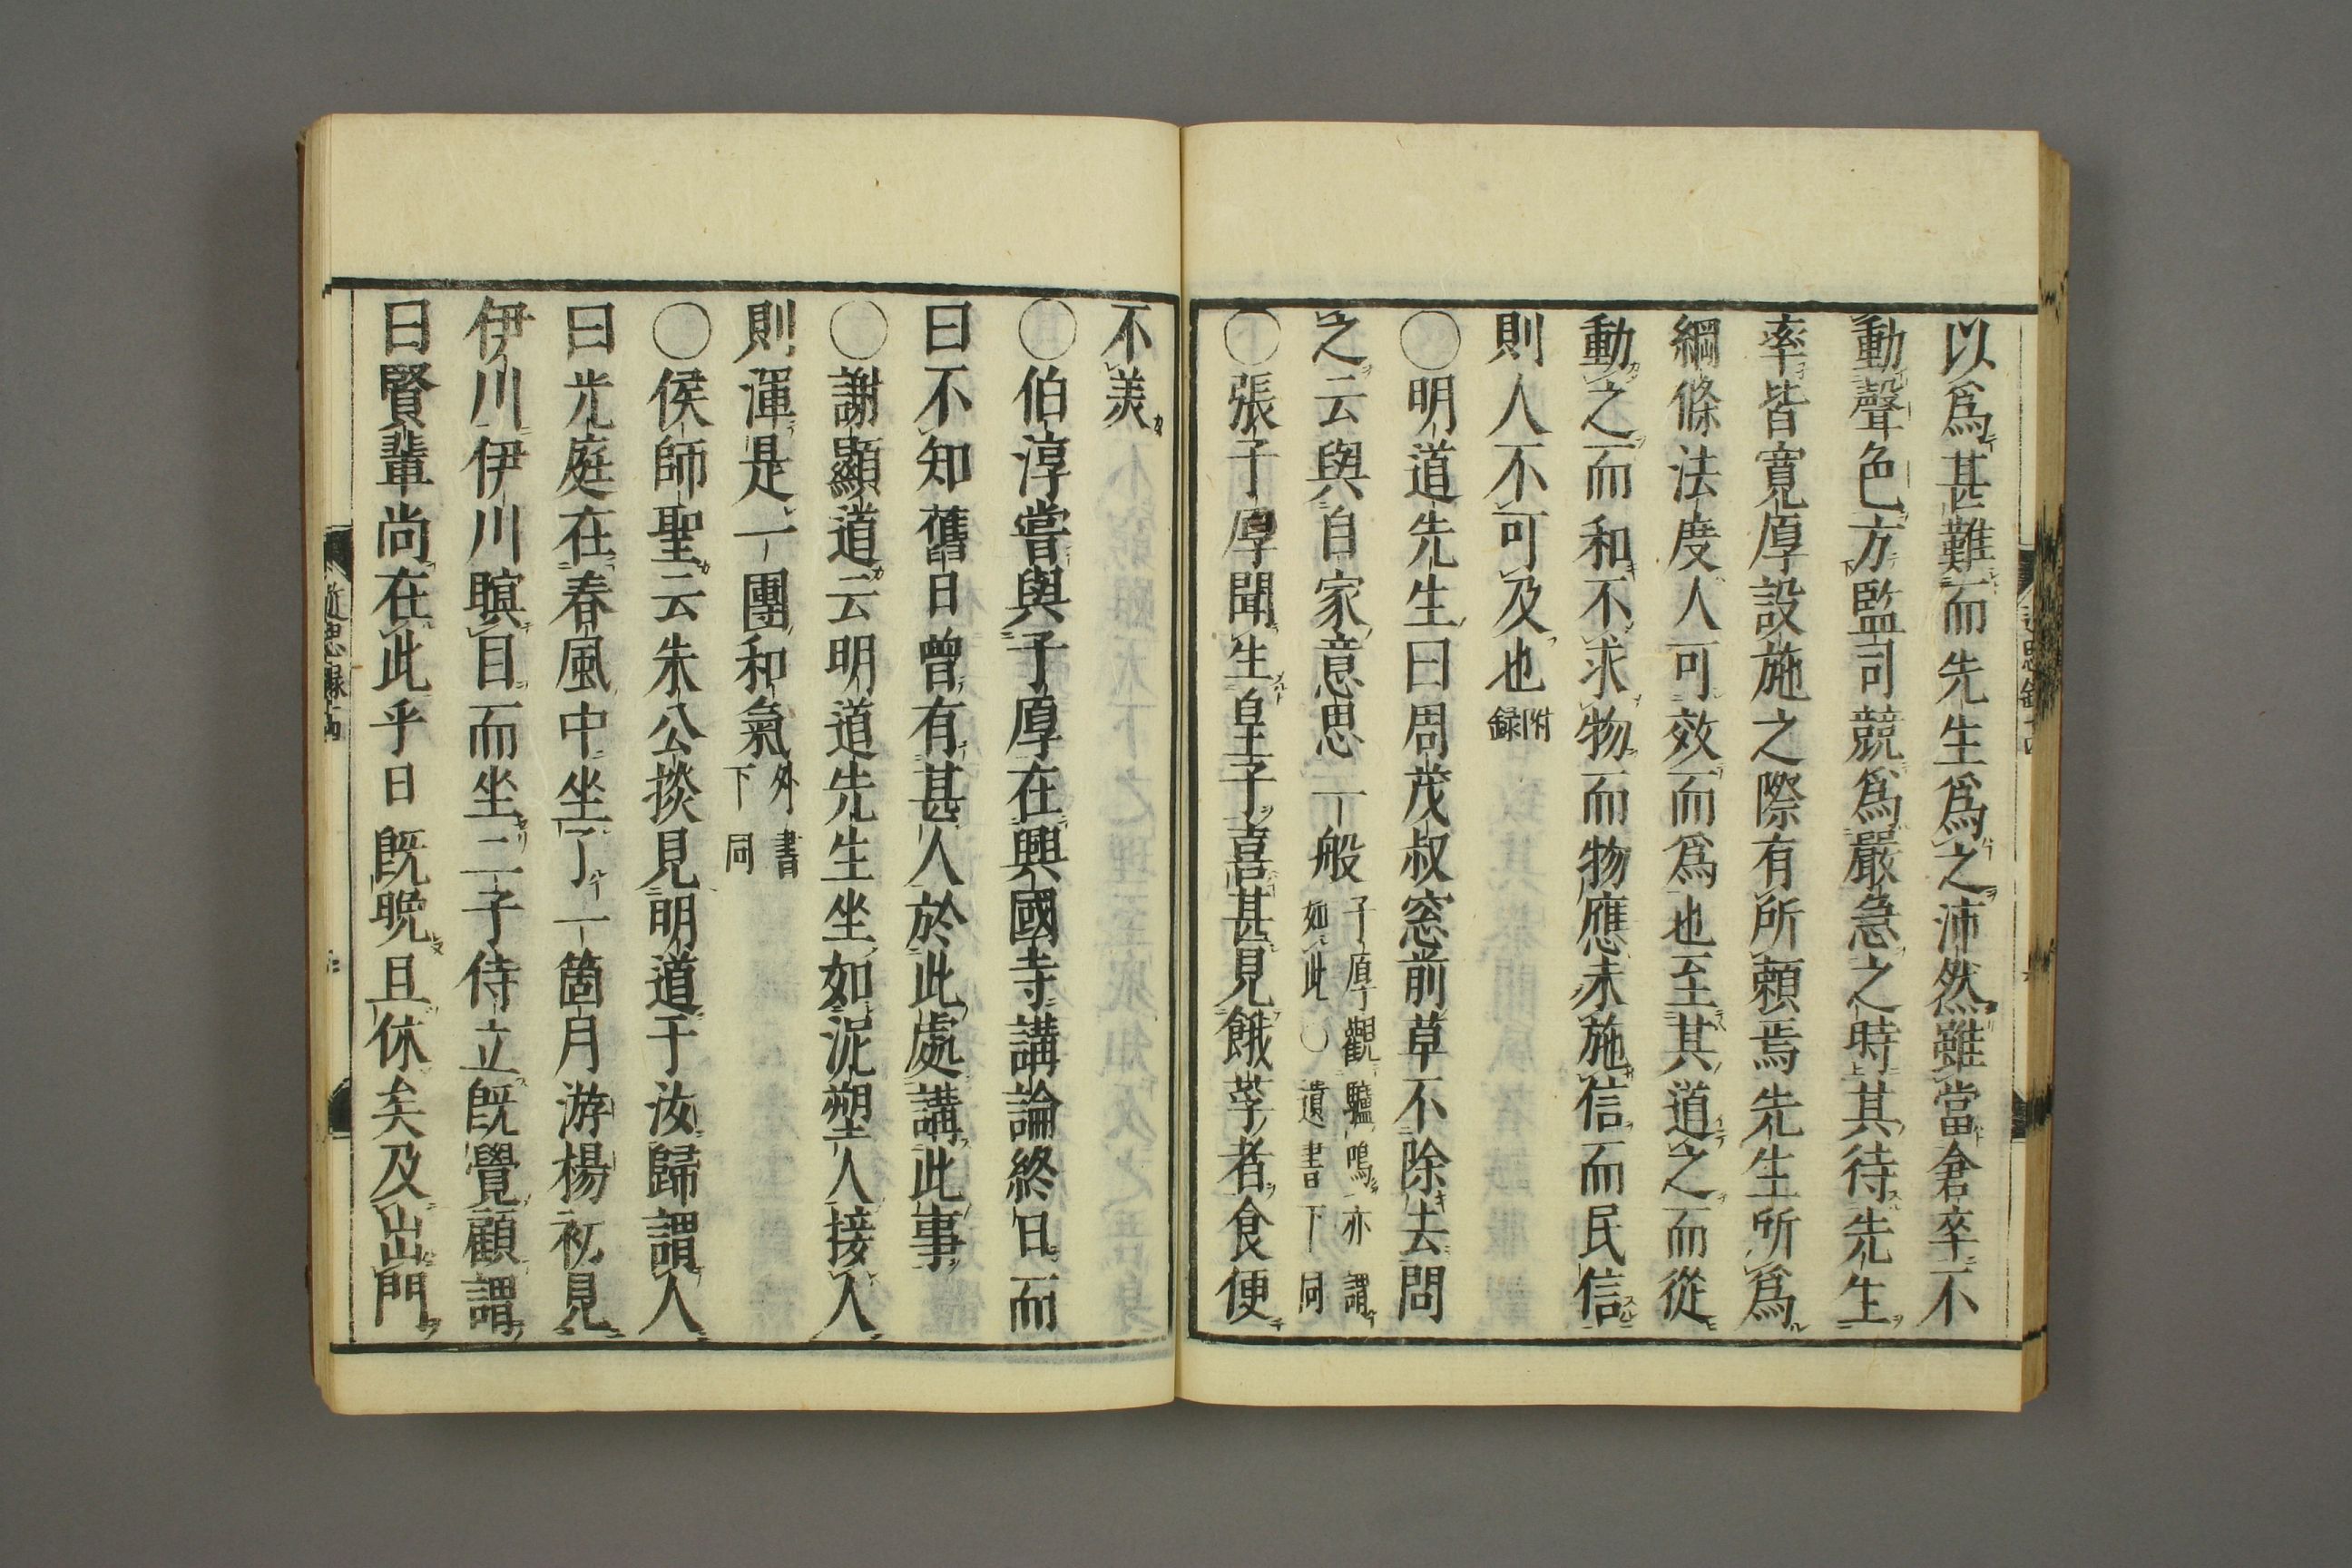 以爲甚難而先生爲之沛然雖當倉卒不
動聲色方監司競爲嚴急之時其待先生
率皆寬厚設施之際有所賴焉先生所爲
綱條法度人可效而爲也至其道之而從
動之而和不求物而物應未施信而民信
則人不可及也附録
〇明道先生曰周茂叔窓前草不除去問
之云與自家意思一般子厚觀驢鳴亦謂如此〇遺書下同
〇張子厚聞生皇子喜甚見餓莩者食便
不美
〇伯淳嘗與子厚在興國寺講論終日而
曰不知舊日曾有甚人於此處講此事
〇謝顯道云明道先生坐如泥塑人接人
則渾是一團和氣外書下同
〇侯師聖云朱公掞見明道于汝歸謂人
曰光庭在春風中坐了一箇月游楊初見
伊川伊川瞑目而坐二子侍立既覺顧謂
曰賢輩尚在此乎日既晩且休矣及出門
近思録